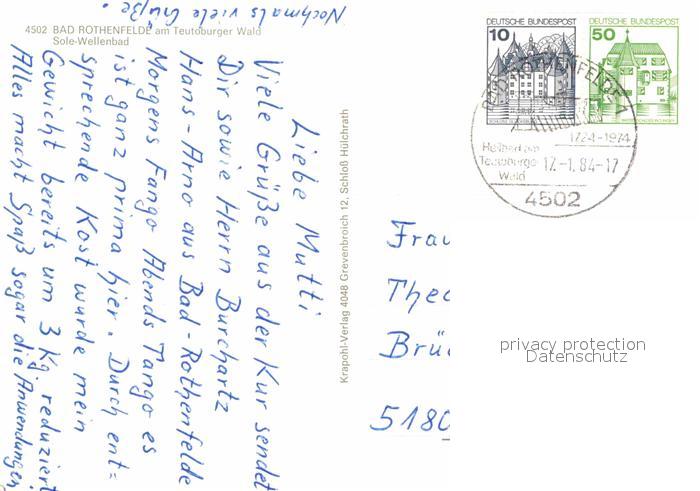 4502 BAD ROTHENFELDE am Teutoburger Wald
Sole-Wellenbad
Liebe Mutti
Viele Grüße aus der Kur sendet
Dir sowie Herrn Burchartz
Hans-Arno aus Bad-Rothenfelde
Morgens Fango Abends Tango es
ist ganz prima hier. Durch ent=
sprechende Kost wurde mein
Gewicht bereits um 3 Kg. reduziert
Alles macht Spaß sogar die Anwendungen
Nochmals viele Grüße.
Krapohl-Verlag 4048 Grevenbroich 12, Schloß Hülchrath
DEUTSCHE BUNDESPOST
10
DEUTSCHE BUNDESPOST
50
BAD ROTHENFELDE 1
1724-1974
Heilbad am
Teutoburger
Wald
17.-1.84-17
4502
Frau
Theo
Brü
5180
privacy protection
Datenschutz